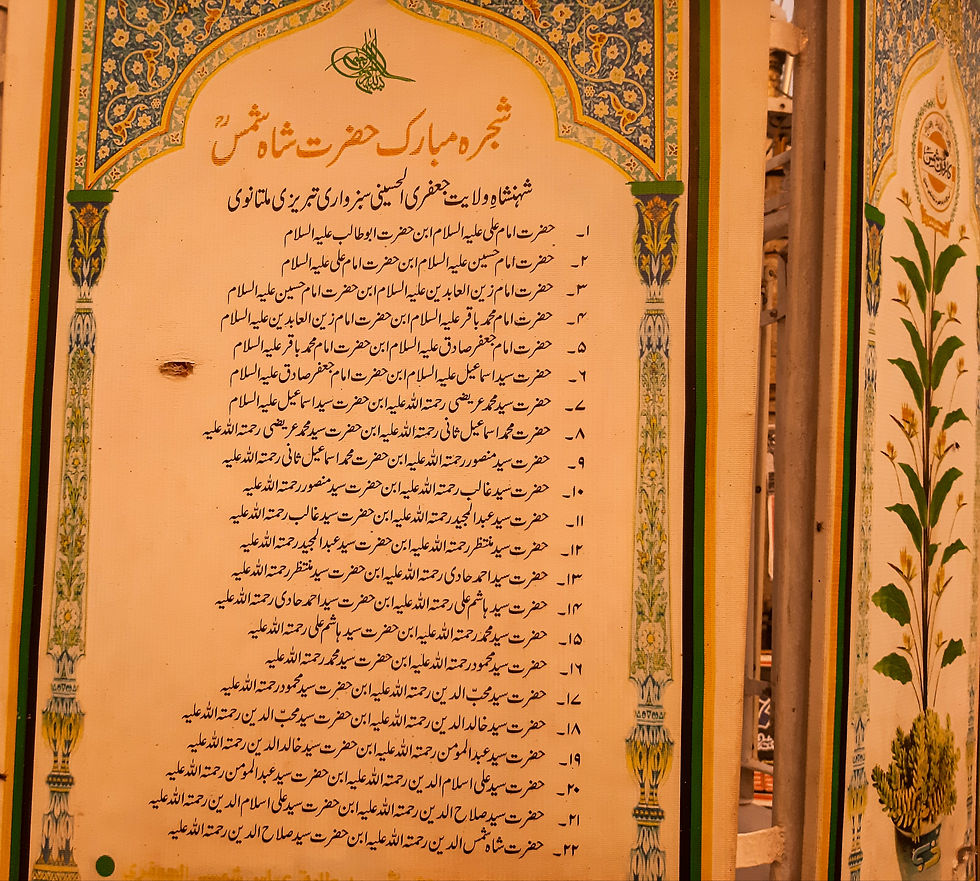 شجرہ مبارک حضرت شاہ شمسؒ
شہنشاہِ ولایت جعفری الحسینی سبزواری تبریزی ملتانوی
۱۔ حضرت امام علی علیہ السلام ابن حضرت ابو طالب علیہ السلام
۲۔ حضرت امام حسین علیہ السلام ابن حضرت امام علی علیہ السلام
۳۔ حضرت امام زین العابدین علیہ السلام ابن حضرت امام حسین علیہ السلام
۴۔ حضرت امام محمد باقر علیہ السلام ابن حضرت امام زین العابدین علیہ السلام
۵۔ حضرت امام جعفر صادق علیہ السلام ابن حضرت امام محمد باقر علیہ السلام
۶۔ حضرت سید اسماعیل علیہ السلام ابن حضرت امام جعفر صادق علیہ السلام
۷۔ حضرت سید محمد عریضی رحمتہ اللہ علیہ ابن حضرت سید اسماعیل علیہ السلام
۸۔ حضرت محمد اسماعیل ثانی رحمتہ اللہ علیہ ابن حضرت سید محمد عریضی رحمتہ اللہ علیہ
۹۔ حضرت سید منصور رحمتہ اللہ علیہ ابن حضرت محمد اسماعیل ثانی رحمتہ اللہ علیہ
۱۰۔ حضرت سید غالب رحمتہ اللہ علیہ ابن حضرت سید منصور رحمتہ اللہ علیہ
۱۱۔ حضرت سید عبدالمجید رحمتہ اللہ علیہ ابن حضرت سید غالب رحمتہ اللہ علیہ
۱۲۔ حضرت سید منتظر رحمتہ اللہ علیہ ابن حضرت سید عبدالمجید رحمتہ اللہ علیہ
۱۳۔ حضرت سید احمد حادی رحمتہ اللہ علیہ ابن حضرت سید منتظر رحمتہ اللہ علیہ
۱۴۔ حضرت سید ہاشم علی رحمتہ اللہ علیہ ابن حضرت سید احمد حادی رحمتہ اللہ علیہ
۱۵۔ حضرت سید محمد رحمتہ اللہ علیہ ابن حضرت سید ہاشم علی رحمتہ اللہ علیہ
۱۶۔ حضرت سید محمود رحمتہ اللہ علیہ ابن حضرت سید محمد رحمتہ اللہ علیہ
۱۷۔ حضرت سید محبّ الدین رحمتہ اللہ علیہ ابن حضرت سید محمود رحمتہ اللہ علیہ
۱۸۔ حضرت سید خالد الدین رحمتہ اللہ علیہ ابن حضرت سید محبّ الدین رحمتہ اللہ علیہ
۱۹۔ حضرت سید عبدالمومن رحمتہ اللہ علیہ ابن حضرت سید خالد الدین رحمتہ اللہ علیہ
۲۰۔ حضرت سید علی اسلام الدین رحمتہ اللہ علیہ ابن حضرت سید عبدالمومن رحمتہ اللہ علیہ
۲۱۔ حضرت سید صلاح الدین رحمتہ اللہ علیہ ابن حضرت سید علی اسلام الدین رحمتہ اللہ علیہ
۲۲۔ حضرت شاہ شمس الدین رحمتہ اللہ علیہ ابن حضرت سید صلاح الدین رحمتہ اللہ علیہ